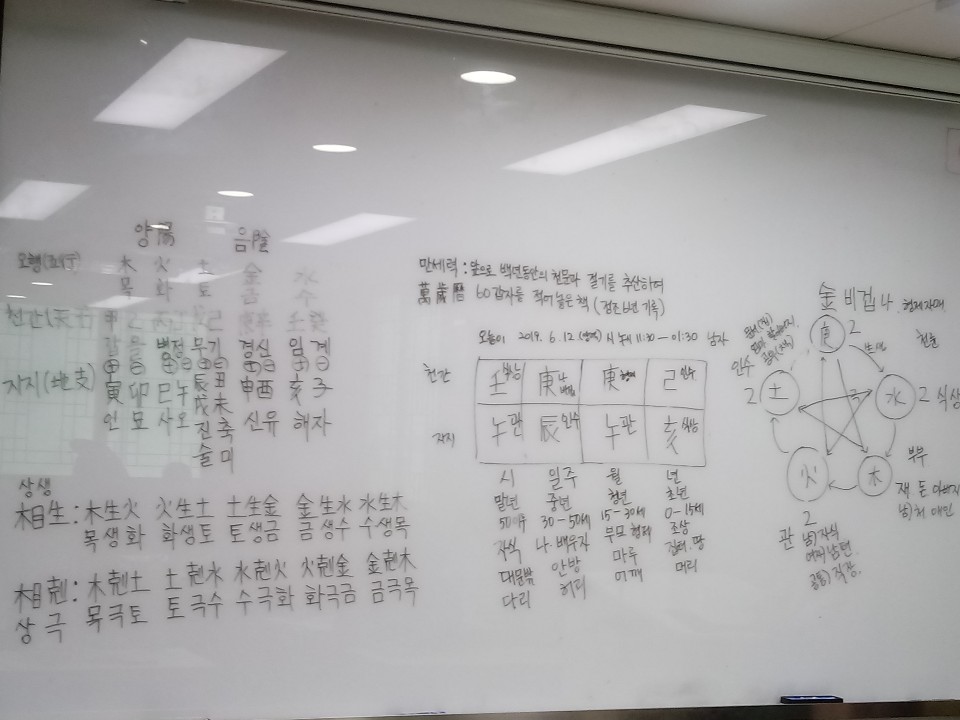 양陽 음陰
오행(五行) 木 火 土 金 水
목 화 토 금 수
천간(天干) 甲乙 丙丁 戊己 庚辛 壬癸
갑을 병정 무기 경신 임계
⊕⊖ ⊕⊖ ⊕⊖ ⊕⊖ ⊕⊖
지지(地支) 寅卯 巳午 辰丑 申酉 亥子
戌未
인묘 사오 신유 해자
진축
술미
상생
相生: 木生火 火生土 土生金 金生水 水生木
목생화 화생토 토생금 금생수 수생목
相剋: 木剋土 土剋水 水剋火 火剋金 金剋木
상극 목극토 토극수 수극화 화극금 금극목
만세력: 앞으로 백년동안의 천문과 절기를 추산하여
萬歲曆 60갑자를 적어놓은 책
2019. 6. 12 11:30 — 01:30 남자
천간 壬 식상 庚 나 비겁 庚 형제 己 인수
지지 午 관 辰 인수 午 관 亥 식상
시 일주 월 년
말년 중년 청년 초년
30-50세 15-30세 0-15세
자식 나.배우자 부모 형제 조상
대문밖 안방 마루
다리 허리 어깨 머리
金 비겁 나. 형제자매
庚 2
인수
土 2
水 2 식상
火 2
木
부부
재 돈 아버지
남)처 애인
관 남)자식
여)남편
직장